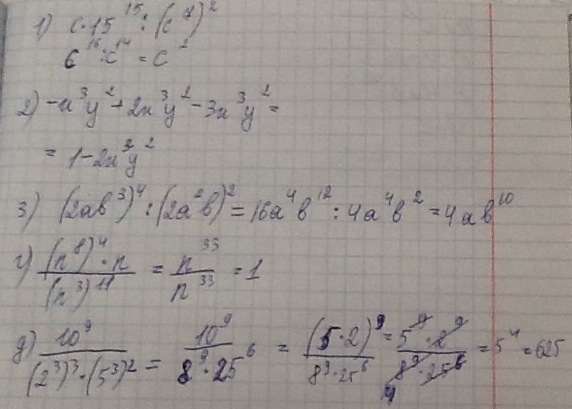 1) c·15^15 : (c^7)^2
c^16 : c^14 = c^2
2) -x^3y^2 + 2x^3y^2 - 3x^3y^2 =
= 1 - 2x^3y^2
3) (2ab^3)^4 : (2a^2b)^2 = 16a^4b^12 : 4a^4b^2 = 4ab^10
г) (n^8)^4·n / (n^3)^11 = n^33 / n^33 = 1
д) 10^9 / (2^3)^3·(5^3)^2 = 10^9 / 8^9·25^6 = (5·2)^9 / 8^9·25^6 = 5^9·2^9 / 8^9·25^6 = 5^4 = 625